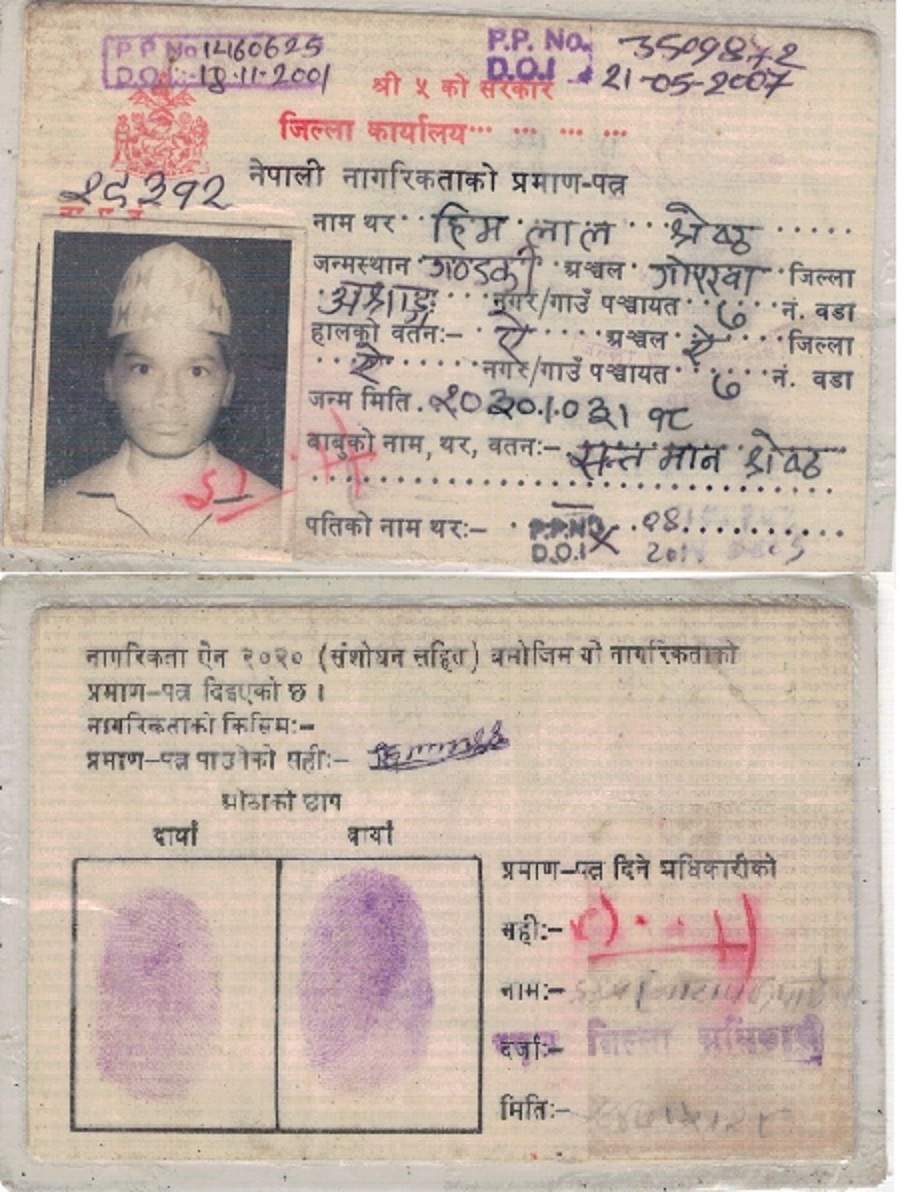 P.P No 1460625
D.O.I :- 18-11-2001
P.P. No. 3509872
D.O.I 21-05-2007
श्री ५ को सरकार
जिल्ला कार्यालय... ... ... ...
नेपाली नागरिकताको प्रमाण-पत्र
२८३१२
नाम थर हिम लाल श्रेष्ठ
जन्मस्थान गण्डकी अञ्चल गोरखा जिल्ला
नगर/गाउँ पञ्चायत ७ नं. वडा
हालको वतन:- ऐ अञ्चल ऐ जिल्ला
ऐ नगर/गाउँ पञ्चायत ७ नं. वडा
जन्म मिति
बाबुको नाम, थर, वतन:- सन्त मान श्रेष्ठ
पतिको नाम थर:- x
P.P.NO
D.O.I
नागरिकता ऐन २०२० (संशोधन सहित) बमोजिम यो नागरिकताको
प्रमाण-पत्र दिइएको छ ।
नागरिकताको किसिम:-
प्रमाण-पत्र पाउनेको सही:-
औंठाको छाप
दायाँ बायाँ
प्रमाण-पत्र दिने अधिकारीको
सही:-
नाम:-
दर्जा:- जिल्ला अधिकारी
मिति:-